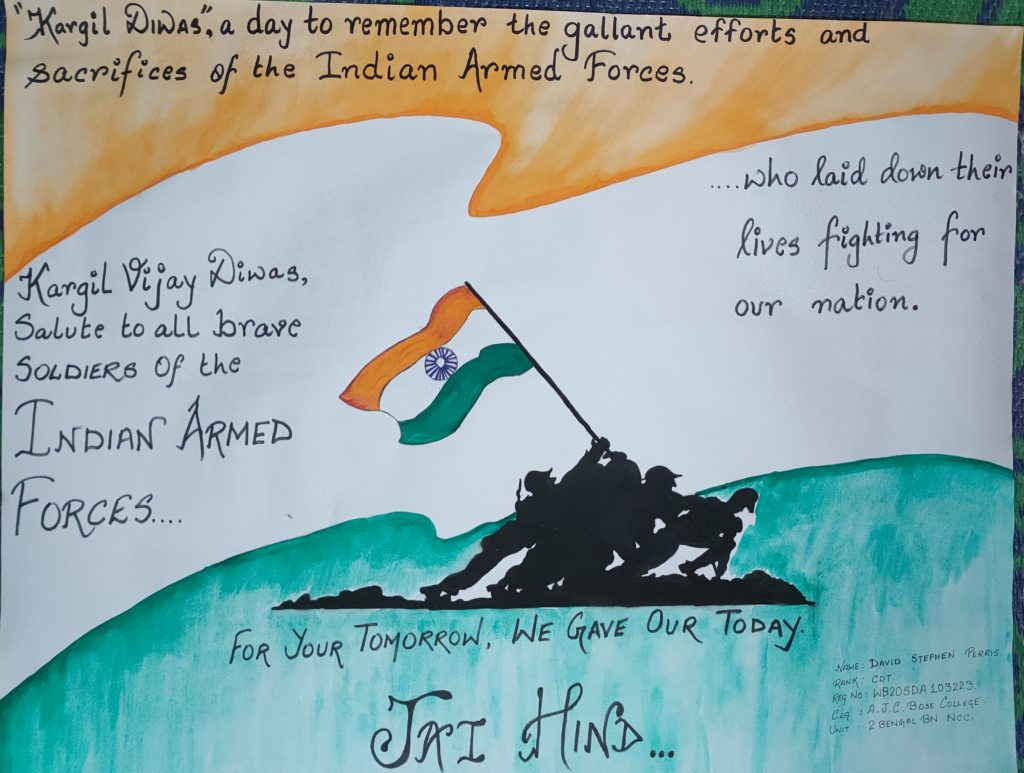 "Kargil Diwas", a day to remember the gallant efforts and
sacrifices of the Indian Armed Forces.
....who laid down their
lives fighting for
our nation.
Kargil Vijay Diwas,
Salute to all brave
SOLDIERS Of the
INDIAN ARMED
FORCES....
FOR YOUR TOMORROW, WE GAVE OUR TODAY.
JAI HIND...
NAME: DAVID STEPHEN PERRIS.
RANK: CDT.
REG NO: WB20SDA103223.
CLG: A.J.C. BOSE COLLEGE.
UNIT: 2 BENGAL BN NCC.